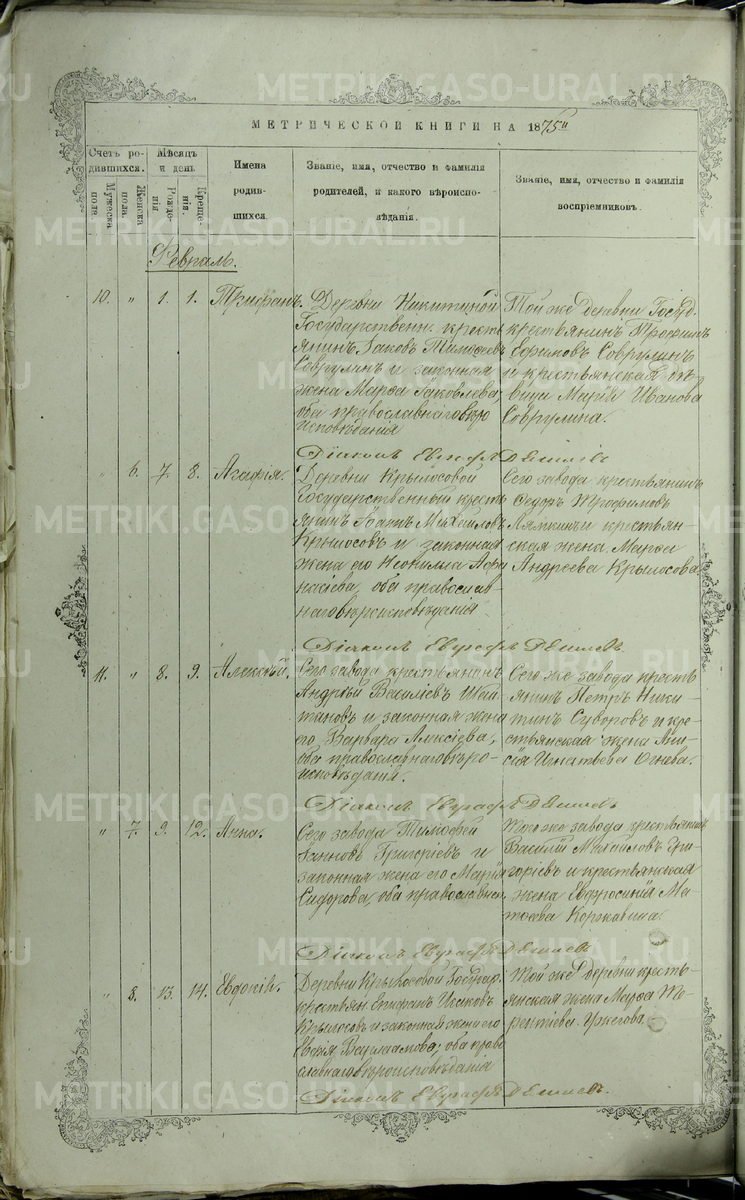 МЕТРИЧЕСКОЙ КНИГИ НА 1875й
Счетъ ро-
дившихся.
Мужеска
пола.
Женска
пола.
Мѣсяцъ
и день
Рожде-
нія
Креще-
нія.
Имена
родив-
шихся.
Званіе, имя, отчество и фамилія
родителей, и какого вѣроиспо-
вѣданія.
Званіе, имя, отчество и фамилія
воспріемниковъ.
Февраль.
10. " 1. 1. Трифонъ.
Деревни Никитиной
Государственн. кресть
янинъ Іаковъ Тимофеевъ
Соврулинъ и законная
жена Марѳа Іаковлева,
оба православнаго вѣро
исповѣданія
Той же деревни Госуд.
крестьянинъ Трофимъ
Ефимовъ Соврулинъ
и крестьянская дѣ-
вица Марія Иванова
Соврулина.
Діаконъ Евграфъ
" 6. 7. 8. Агафія.
Деревни Крылосовой
Государственный кресть
янинъ Іоаннъ Михайловъ
Крылосовъ и законная
жена его Неонилла Афа
насіева, оба православ-
наго вѣроисповѣданія
Сего завода крестьянинъ
Ѳедоръ Трофимовъ
Лямкинъ и крестьян-
ская жена Марѳа
Андреева Крылосова.
Діаконъ Евграфъ
11. " 8. 9. Алексѣй.
Сего завода крестьянинъ
Андрей Василіевъ Шай
тановъ и законная жена
его Варвара Алексіева,
оба православнаго вѣро-
исповѣданія.
Сего же завода кресть
янинъ Петръ Ники
тинъ Суворовъ и кре-
стьянская жена Ани-
сія Игнатьева Огнева.
Діаконъ Евграфъ
" 7. 9. 12. Анна.
Сего завода Тимофей
Іоанновъ Григоріевъ и
законная жена его Марія
Сидорова, оба православнаго
Того же завода крестьянинъ
Василій Михайловъ Гри
горіевъ и крестьянская
жена Евфросинія Ма-
тѳеева Корокавина.
Діаконъ Евграфъ
" 8. 13. 14. Евдокія.
Деревни Крылосовой Государ.
крестьян. Епифанъ Исаковъ
Крылосовъ и законная жена его
Варлаамова, оба право
славнаго вѣроисповѣданія
Той же деревни кресть-
янская жена Марѳа Те-
рентіева
Діаконъ Евграфъ
METRIKI.GASO-URAL.RU